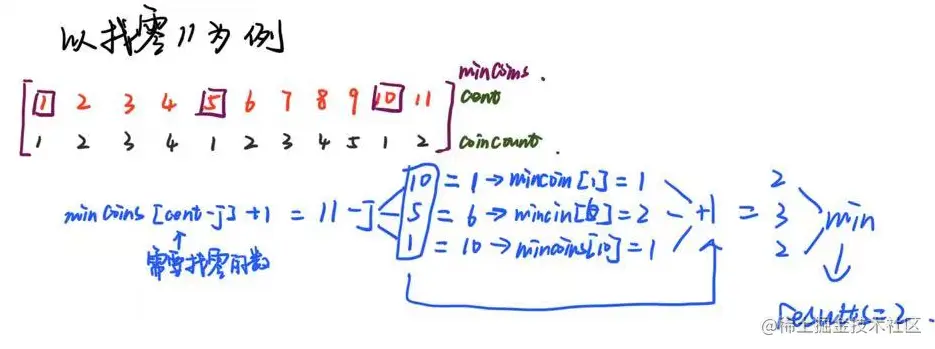 以找零11为例
minCoins.
1 2 3 4 5 6 7 8 9 10 11 cent
1 2 3 4 1 2 3 4 5 1 2 coincount.
10 = 1 → mincoin[1] = 1 2
minCoins [cent-j] + 1 = 11 - j 5 = 6 → mincoin[6] = 2 +1 = 3 min
1 = 10 → mincoins[10] = 1 2
↑
需要找零的数
results = 2.
@稀土掘金技术社区